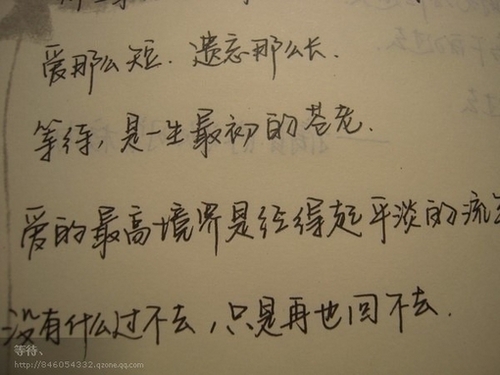 爱那么短.遗忘那么长.
等待,是一生最初的苍老.
爱的最高境界是经得起平淡的流
没有什么过不去,只是再也回不去.
等待、
http://846054332.qzone.qq.com